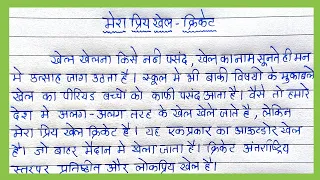 मेरा प्रिय खेल - क्रिकेट
खेल खेलना किसे नही पसंद, खेल का नाम सुनते ही मन
मे उत्साह जाग उठता है। स्कूल मे भी बाकी विषयो के मुकाबले
खेल का पीरियड बच्चो को काफी पसंद आता है। वैसे तो हमारे
देश मे अलग-अलग तरह के खेल खेले जाते है, लेकिन
मेरा प्रिय खेल क्रिकेट है। यह एक प्रकार का आऊटडोर खेल
है। जो बाहर मैदान मे खेला जाता है। क्रिकेट अंतर्राष्ट्रिय
स्तर पर प्रतिष्ठीत और लोकप्रिय खेल है।